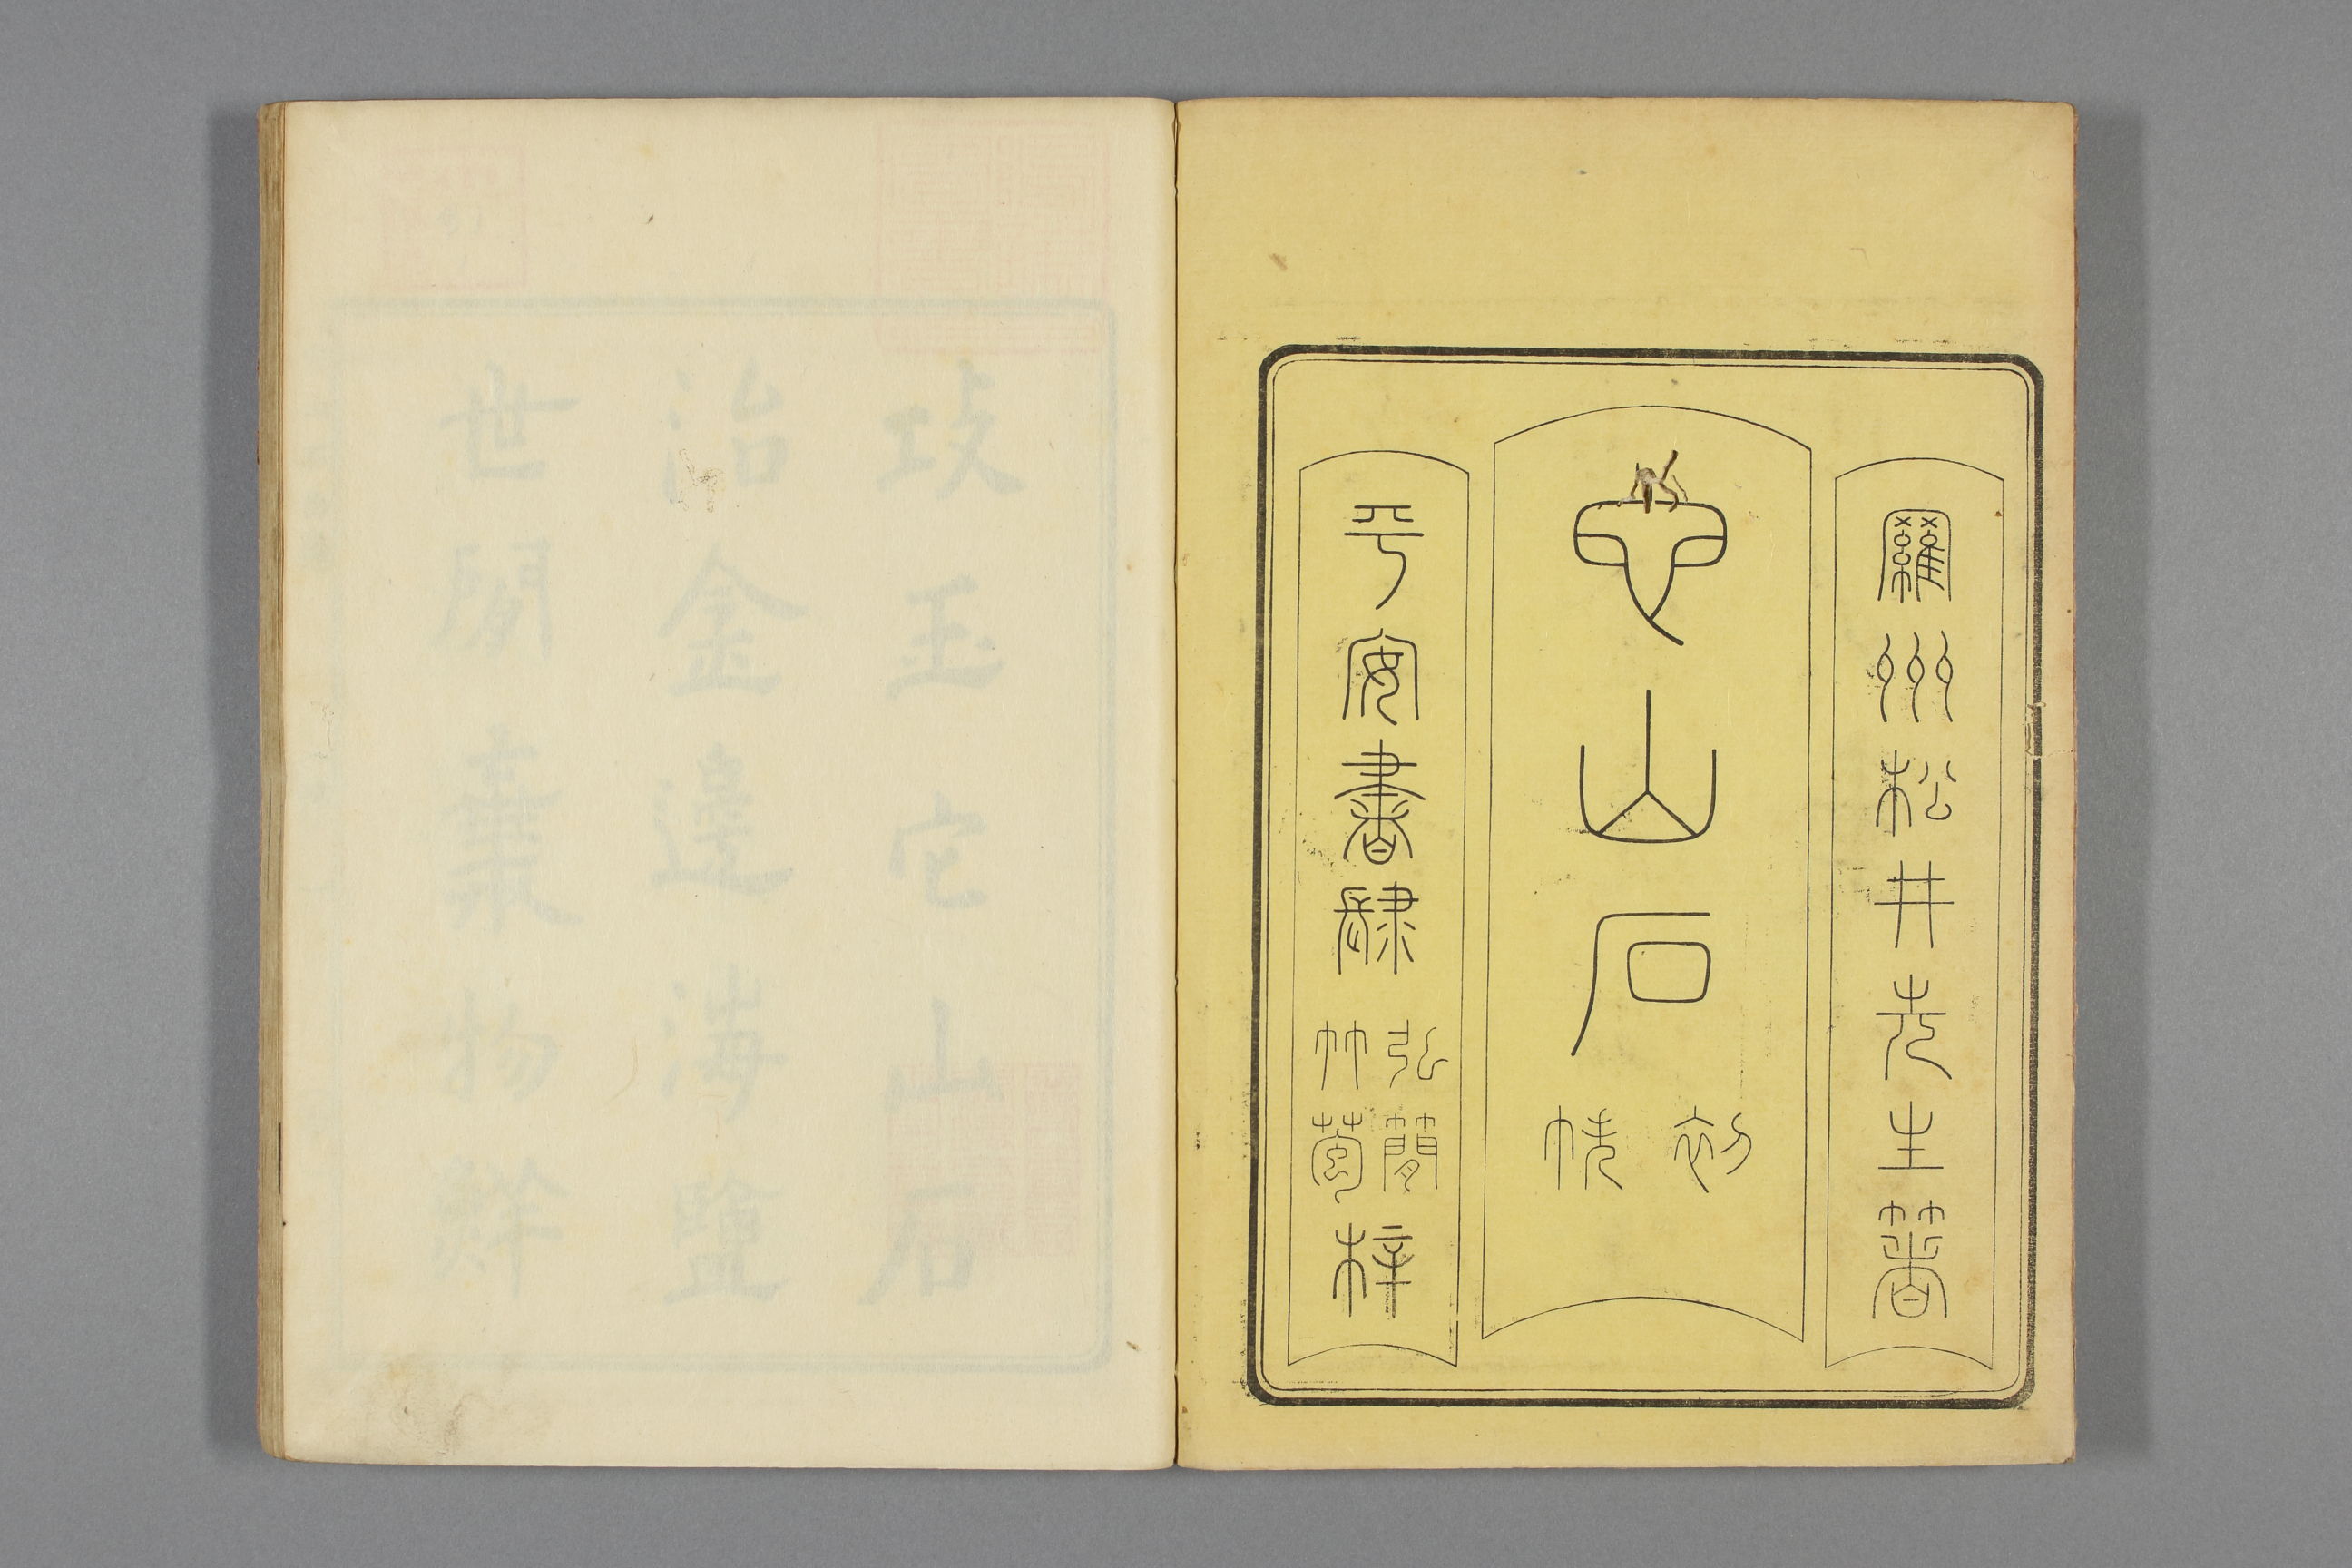 羅州松井先生箸
它山石
初帙
平安書肆
弘簡
竹苞
梓
攻玉它山石
治金邊海鹽
世間棄物鮮